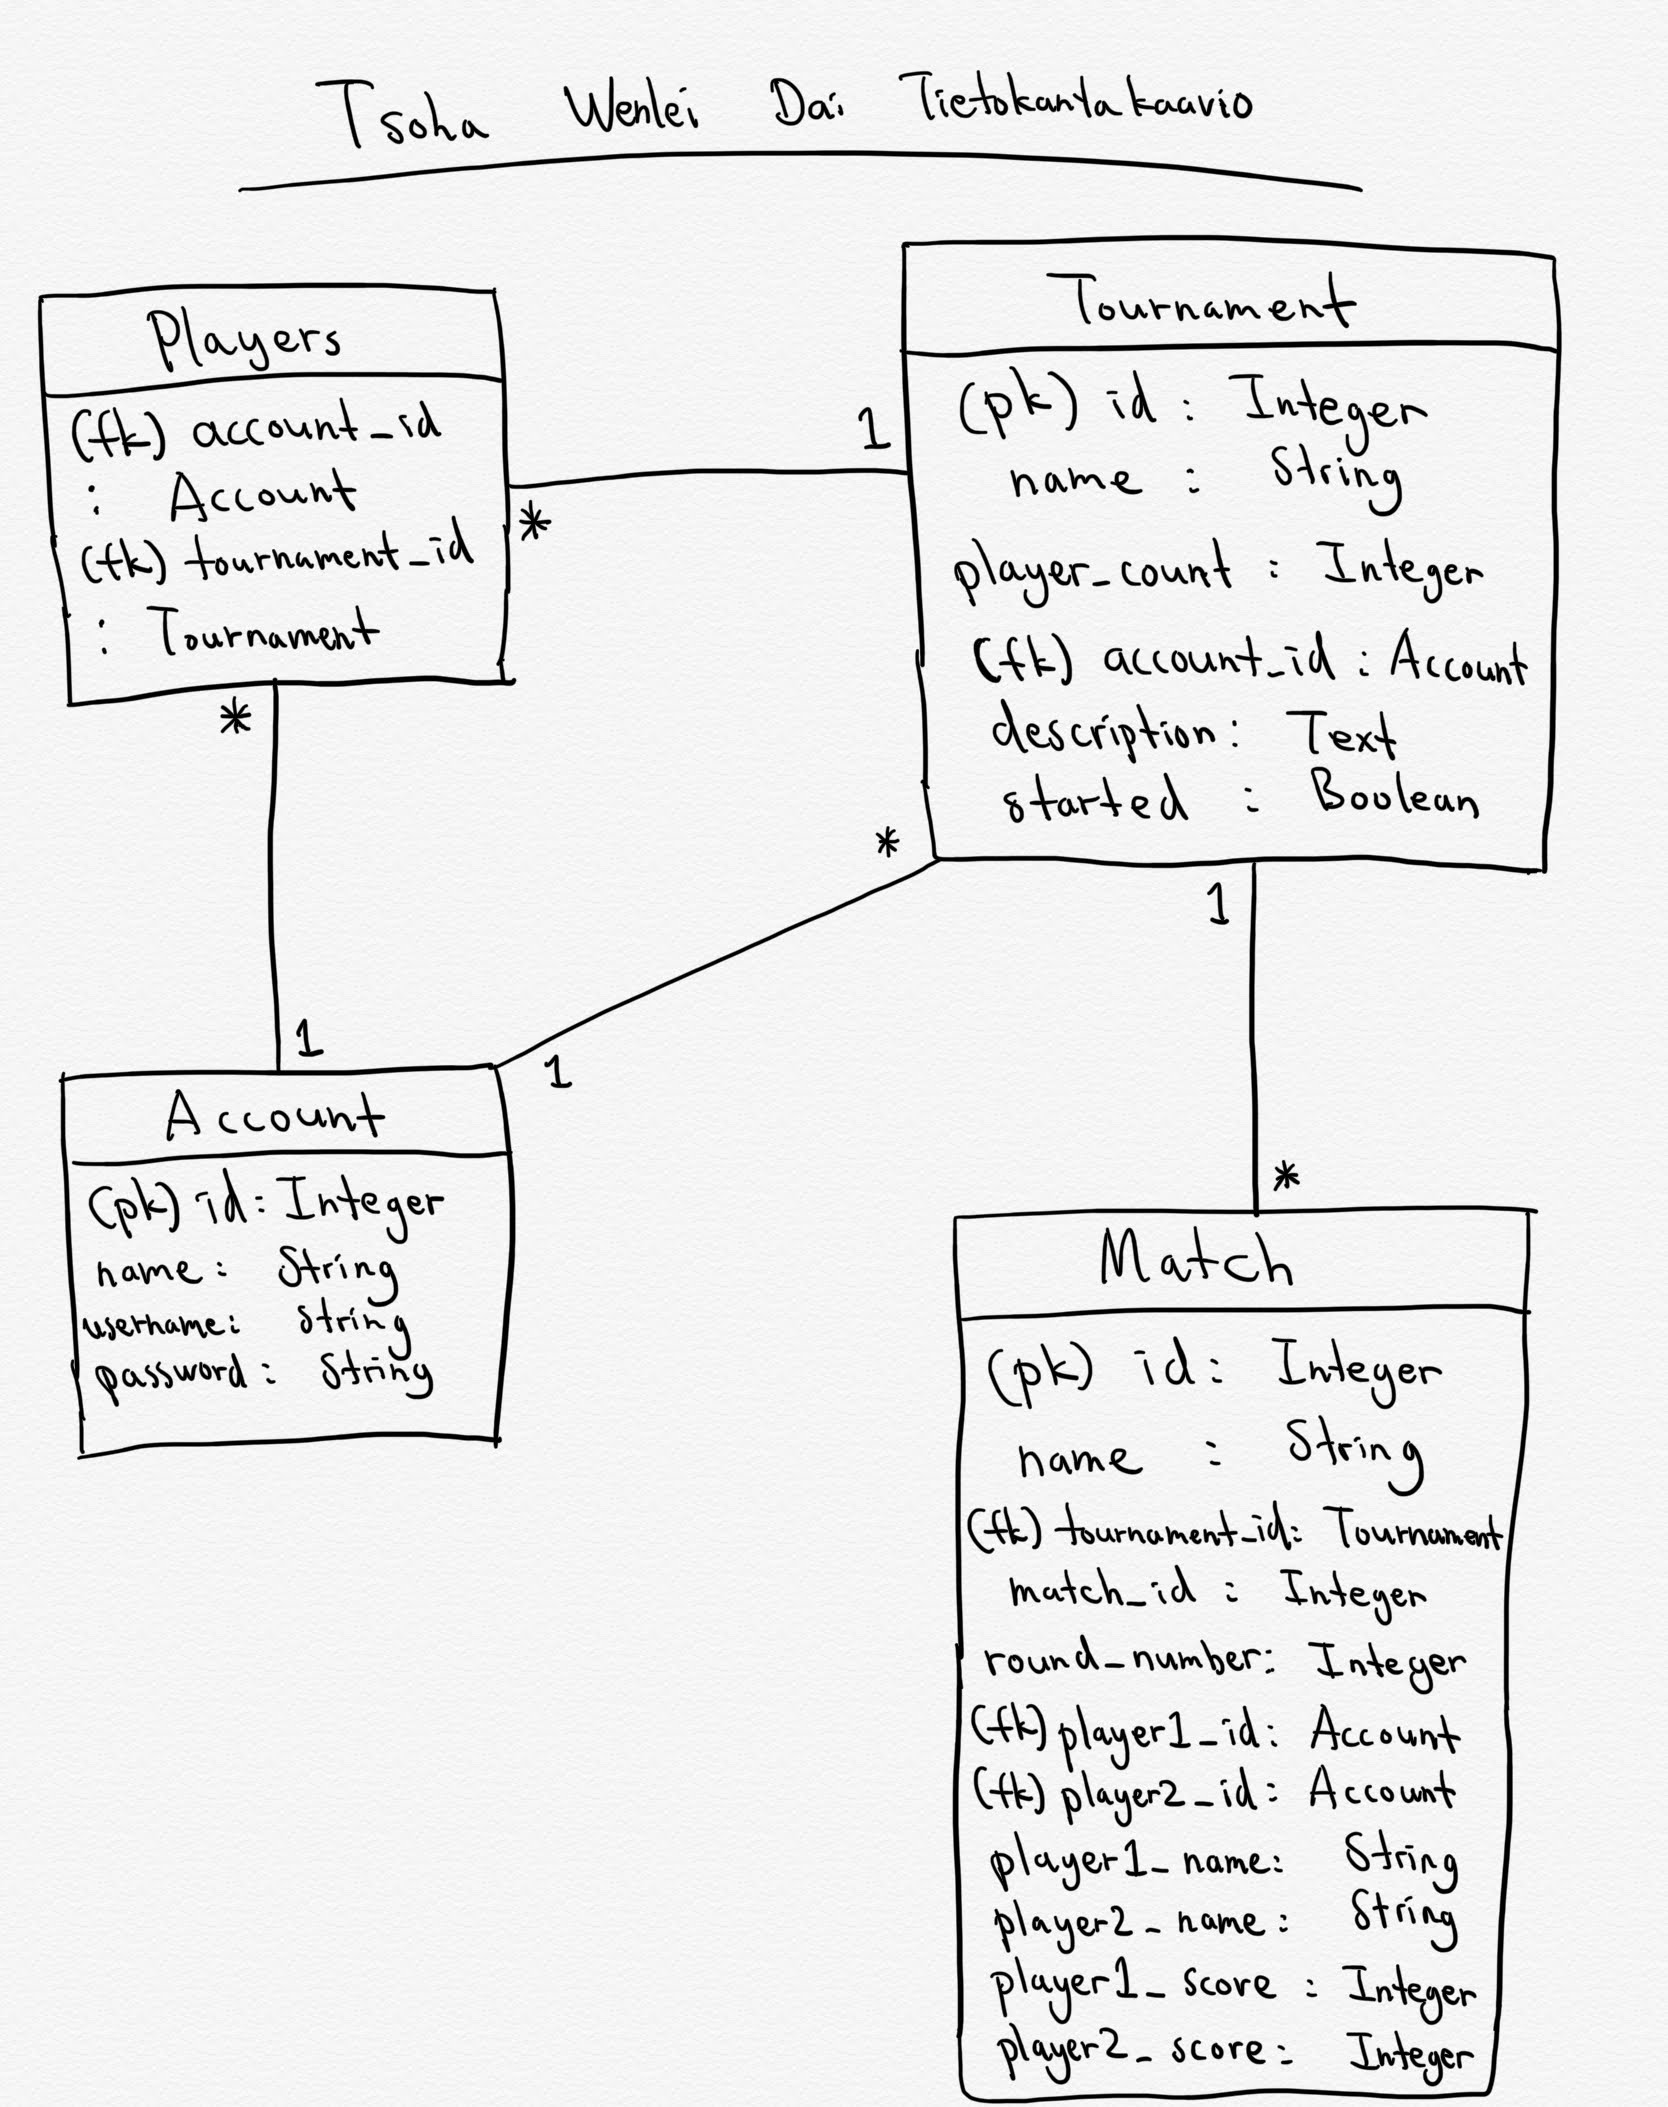 Tsoha Wenlei Dai Tietokantakaavio
Players
(fk) account_id
: Account
(fk) tournament_id
: Tournament
*
*
1
Tournament
(pk) id : Integer
name : String
player_count : Integer
(fk) account_id : Account
description : Text
started : Boolean
*
1
1
1
*
Account
(pk) id : Integer
name : String
username : String
password : String
Match
(pk) id : Integer
name : String
(fk) tournament_id : Tournament
match_id : Integer
round_number : Integer
(fk) player1_id : Account
(fk) player2_id : Account
player1_name : String
player2_name : String
player1_score : Integer
player2_score : Integer